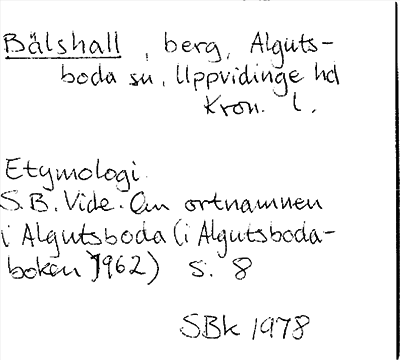 Bälshall, berg, Alguts-
boda sn, Uppvidinge hd
Kron. l.
Etymologi
S.B. Vide. Om ortnamnen
i Algutsboda (i Algutsboda-
boken 1962) s. 8
SBk 1978